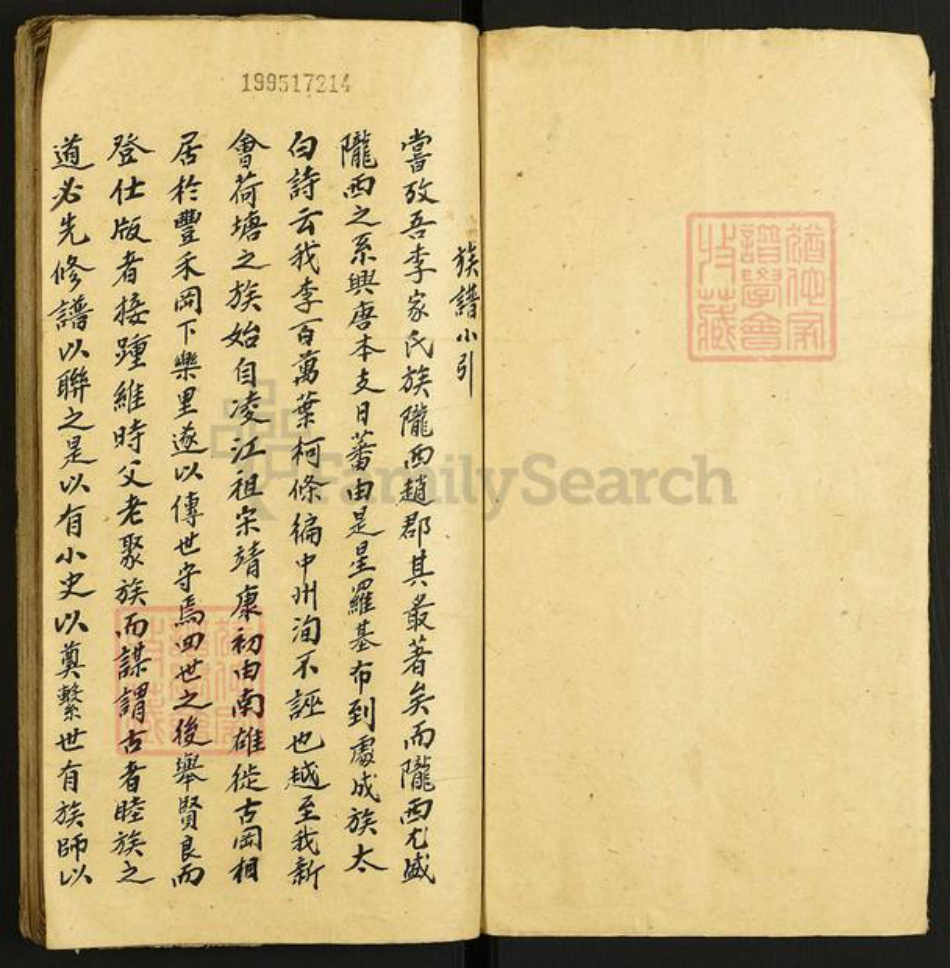 199517214
族譜小引
嘗攷吾李家氏族隴西趙郡其最著矣而隴西尤盛
隴西之系興唐本支日蕃由是星羅基布到處成族太
白詩云我李百萬葉柯條編中州洵不誣也越至我新
會荷塘之族始自凌江祖宋靖康初由南雄徙古岡相
居於豐禾岡下樂里遂以傳世守焉四世之後舉賢良而
登仕版者接踵維時父老聚族而謀謂古者睦族之
道必先修譜以聯之是以有小史以奠繫世有族師以
猶他家
譜學會
收藏
FamilySearch